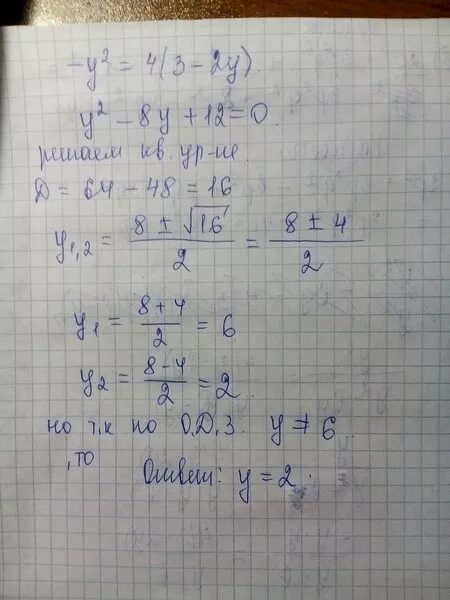 -y² = 4(3 - 2y)
y² - 8y + 12 = 0
решаем кв. ур-ие
Д = 64 - 48 = 16
y₁,₂ = (8 ± √16)/2 = (8 ± 4)/2
y₁ = (8 + 4)/2 = 6
y₂ = (8 - 4)/2 = 2.
но т.к по О.Д.З. y ≠ 6
, то
Ответ: y = 2.